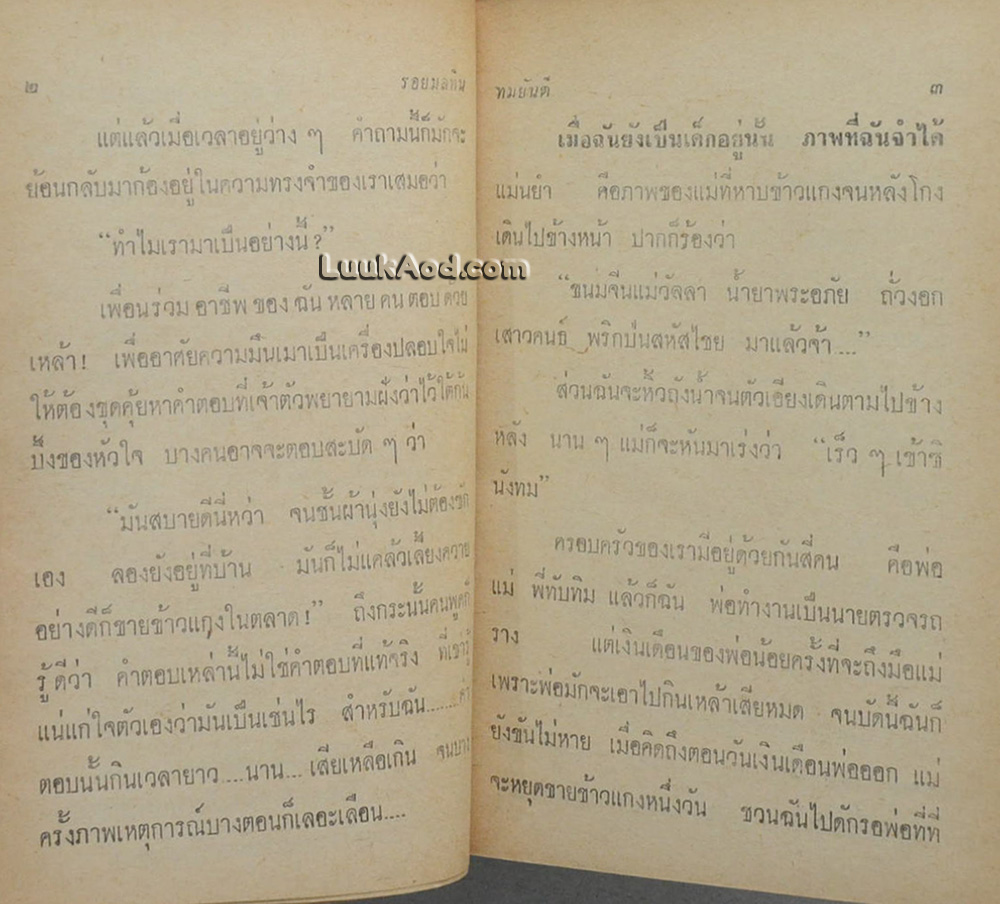 ๒ รอยมลทิน
แต่แล้วเมื่อเวลาอยู่ว่าง ๆ คำถามนี้ก็มักจะ
ย้อนกลับมาก้องอยู่ในความทรงจำของเราเสมอว่า
“ทำไมเรามาเป็นอย่างนี้?”
เพื่อนร่วมอาชีพของฉันหลายคนตอบด้วย
เหล้า! เพื่ออาศัยความมึนเมาเป็นเครื่องปลอบใจไม่
ให้ต้องขุดคุ้ยหาคำตอบที่เจ้าตัวพยายามฝังว่าไว้ใต้ก้น
บึ้งของหัวใจ บางคนอาจจะตอบสะบัด ๆ ว่า
“มันสบายดีนี่หว่า จนชั้นผ้านุ่งยังไม่ต้องซัก
เอง ลองยังอยู่ที่บ้าน มันก็ไม่แคล้วเลี้ยงควาย
อย่างดีก็ขายข้าวแกงในตลาด!” ถึงกระนั้นคนพูดก็
รู้ดีว่า คำตอบเหล่านี้ไม่ใช่คำตอบที่แท้จริง ที่เขารู้
แน่แก่ใจตัวเองว่ามันเป็นเช่นไร สำหรับฉัน........คำ
ตอบนั้นกินเวลายาว ....นาน.... เสียเหลือเกิน จนบาง
ครั้งภาพเหตุการณ์บางตอนก็เลอะเลือน....
ทมยันตี ๓
เมื่อฉันยังเป็นเด็กอยู่นั้น ภาพที่ฉันจำได้
แม่นยำ คือภาพของแม่ที่หาบข้าวแกงจนหลังโกง
เดินไปข้างหน้า ปากก็ร้องว่า
“ขนมจีนแม่วัลลา น้ำยาพระอภัย ถั่วงอก
เสาวคนธ์ พริกป่นสหัสไชย มาแล้วจ้า....”
ส่วนฉันจะหิ้วถังน้ำจนตัวเอียงเดินตามไปข้าง
หลัง นาน ๆ แม่ก็จะหันมาเร่งว่า “เร็ว ๆ เข้าซิ
นังทม”
ครอบครัวของเรามีอยู่ด้วยกันสี่คน คือพ่อ
แม่ พี่ทับทิม แล้วก็ฉัน พ่อทำงานเป็นนายตรวจรถ
ราง แต่เงินเดือนของพ่อน้อยครั้งที่จะถึงมือแม่
เพราะพ่อมักจะเอาไปกินเหล้าเสียหมด จนบัดนี้ฉันก็
ยังขันไม่หาย เมื่อคิดถึงตอนวันเงินเดือนพ่อออก แม่
จะหยุดขายข้าวแกงหนึ่งวัน ชวนฉันไปดักรอพ่อที่ที่
LuukAod.com